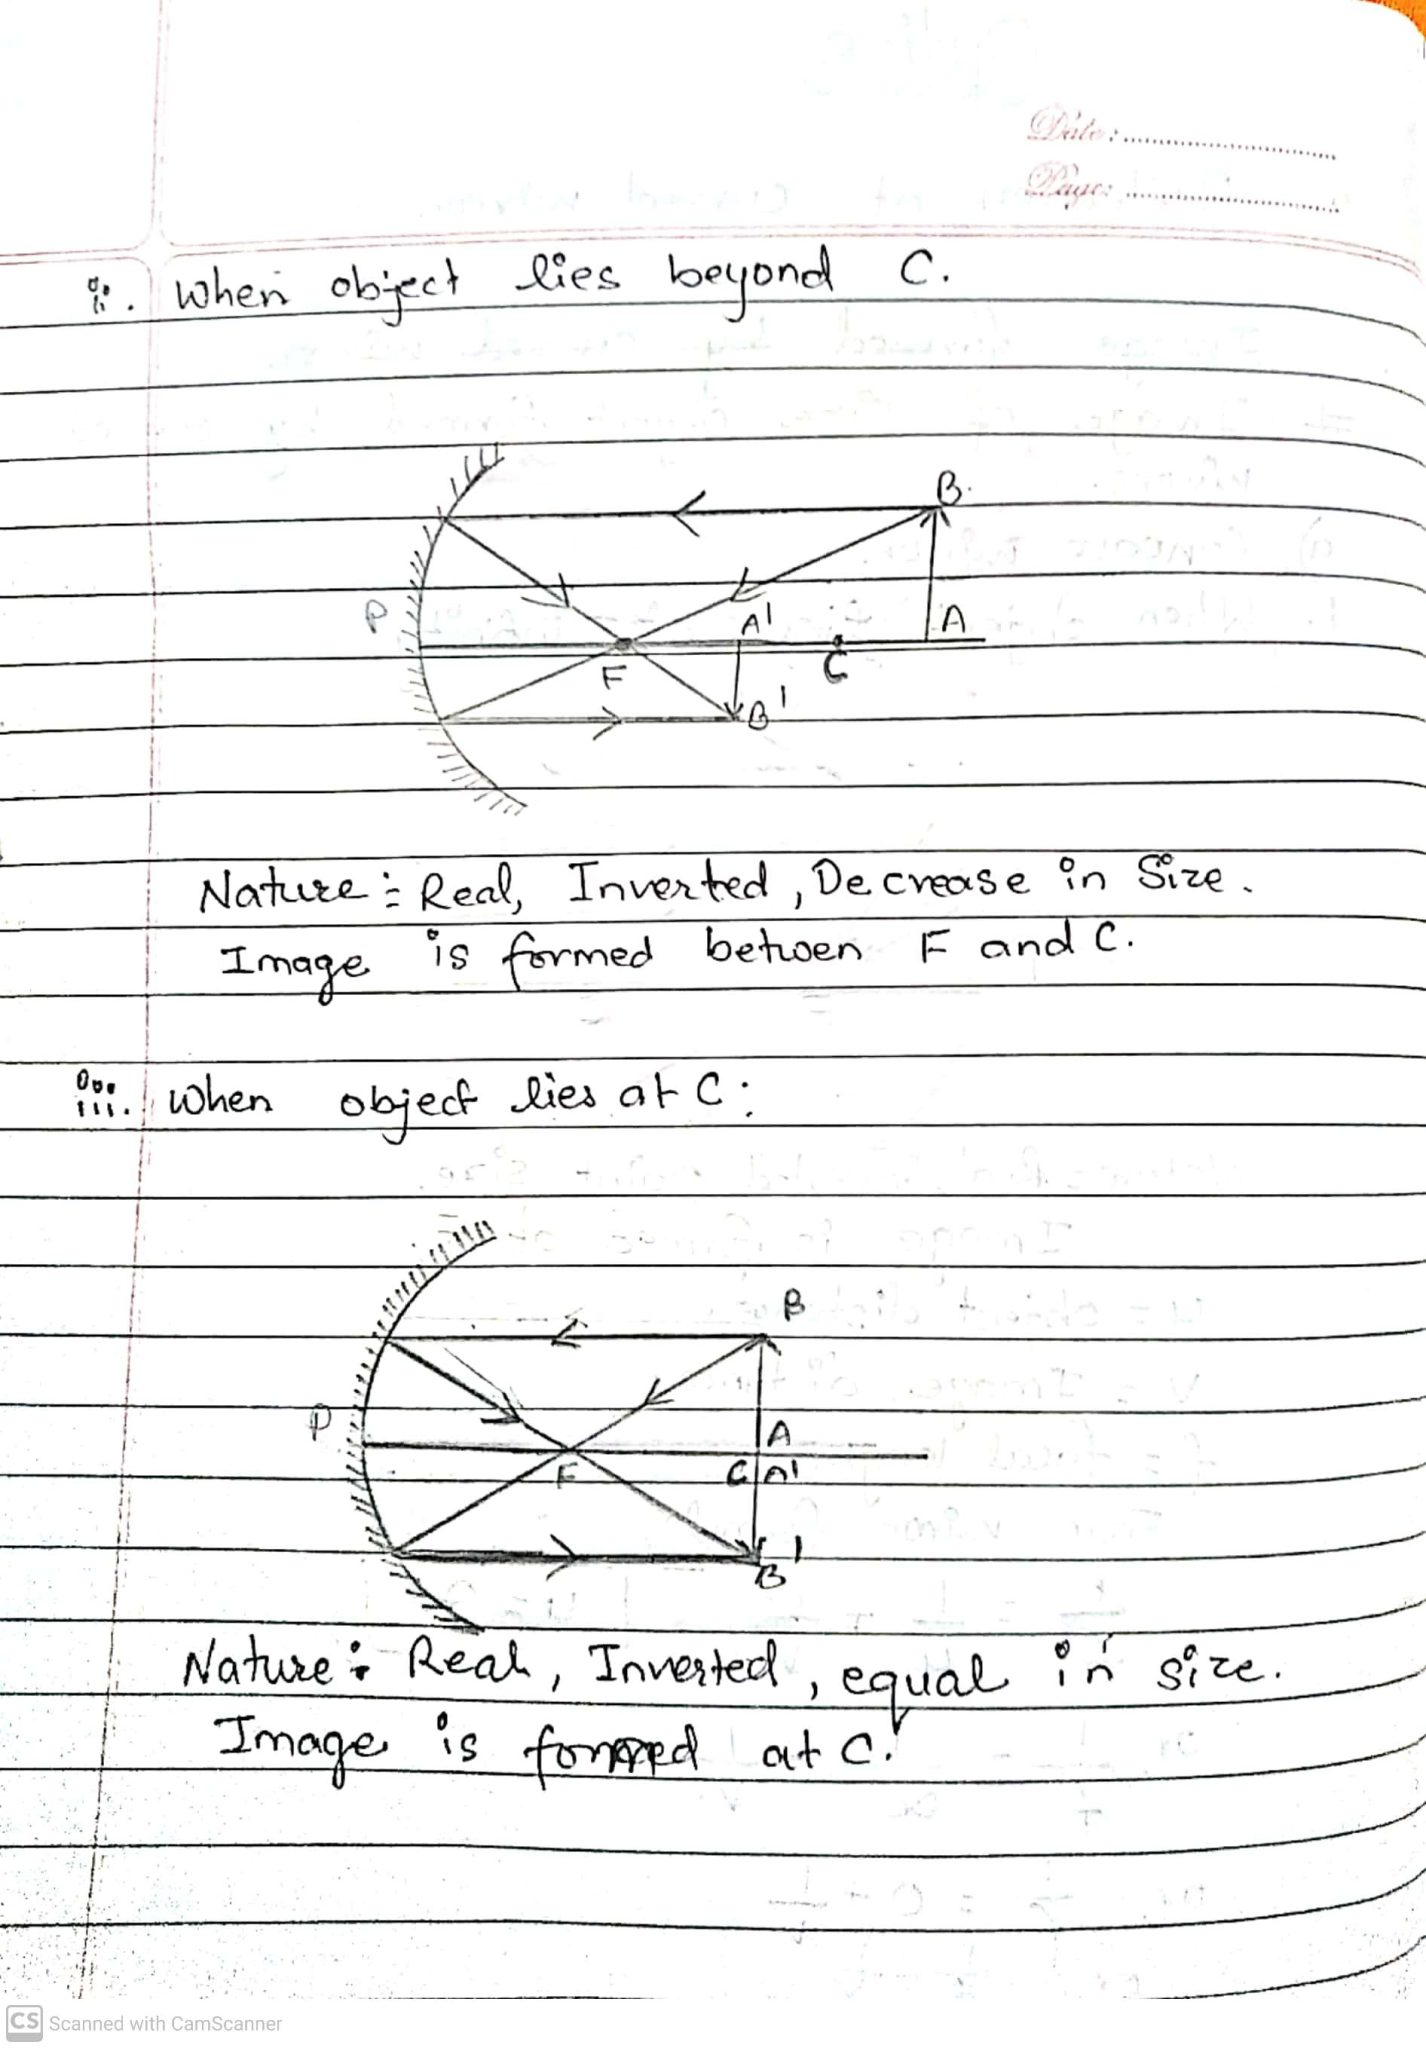 Date:
Page:
ii. When object lies beyond C.
B.
P
A'
A
F
C
B'
Nature :- Real, Inverted, Decrease in Size.
Image is formed betwen F and C.
iii. When object lies at C:
B
P
A
F
C A'
B'
Nature : Real, Inverted, equal in size.
Image is formed at C.
CS Scanned with CamScanner